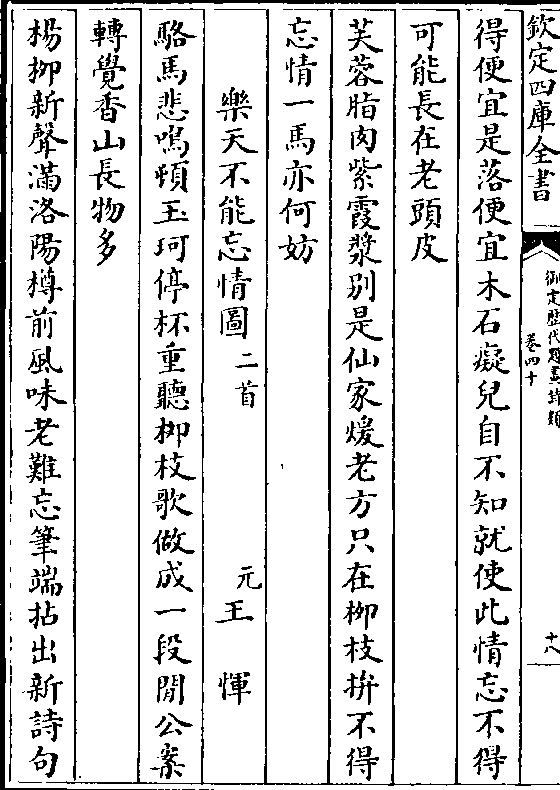 欽定四庫全書
御定歷代題畫詩類
卷四十
十八
得便宜是落便宜木石癡兒自不知就使此情忘不得
可能長在老頭皮
芙蓉脂肉紫霞漿別是仙家煖老方只在栁枝拚不得
忘情一馬亦何妨
樂天不能忘情圖二首 元王惲
駱馬悲鳴頓玉珂停杯重聽栁枝歌做成一段閒公案
轉覺香山長物多
楊栁新聲滿洛陽樽前風味老難忘筆端拈出新詩句